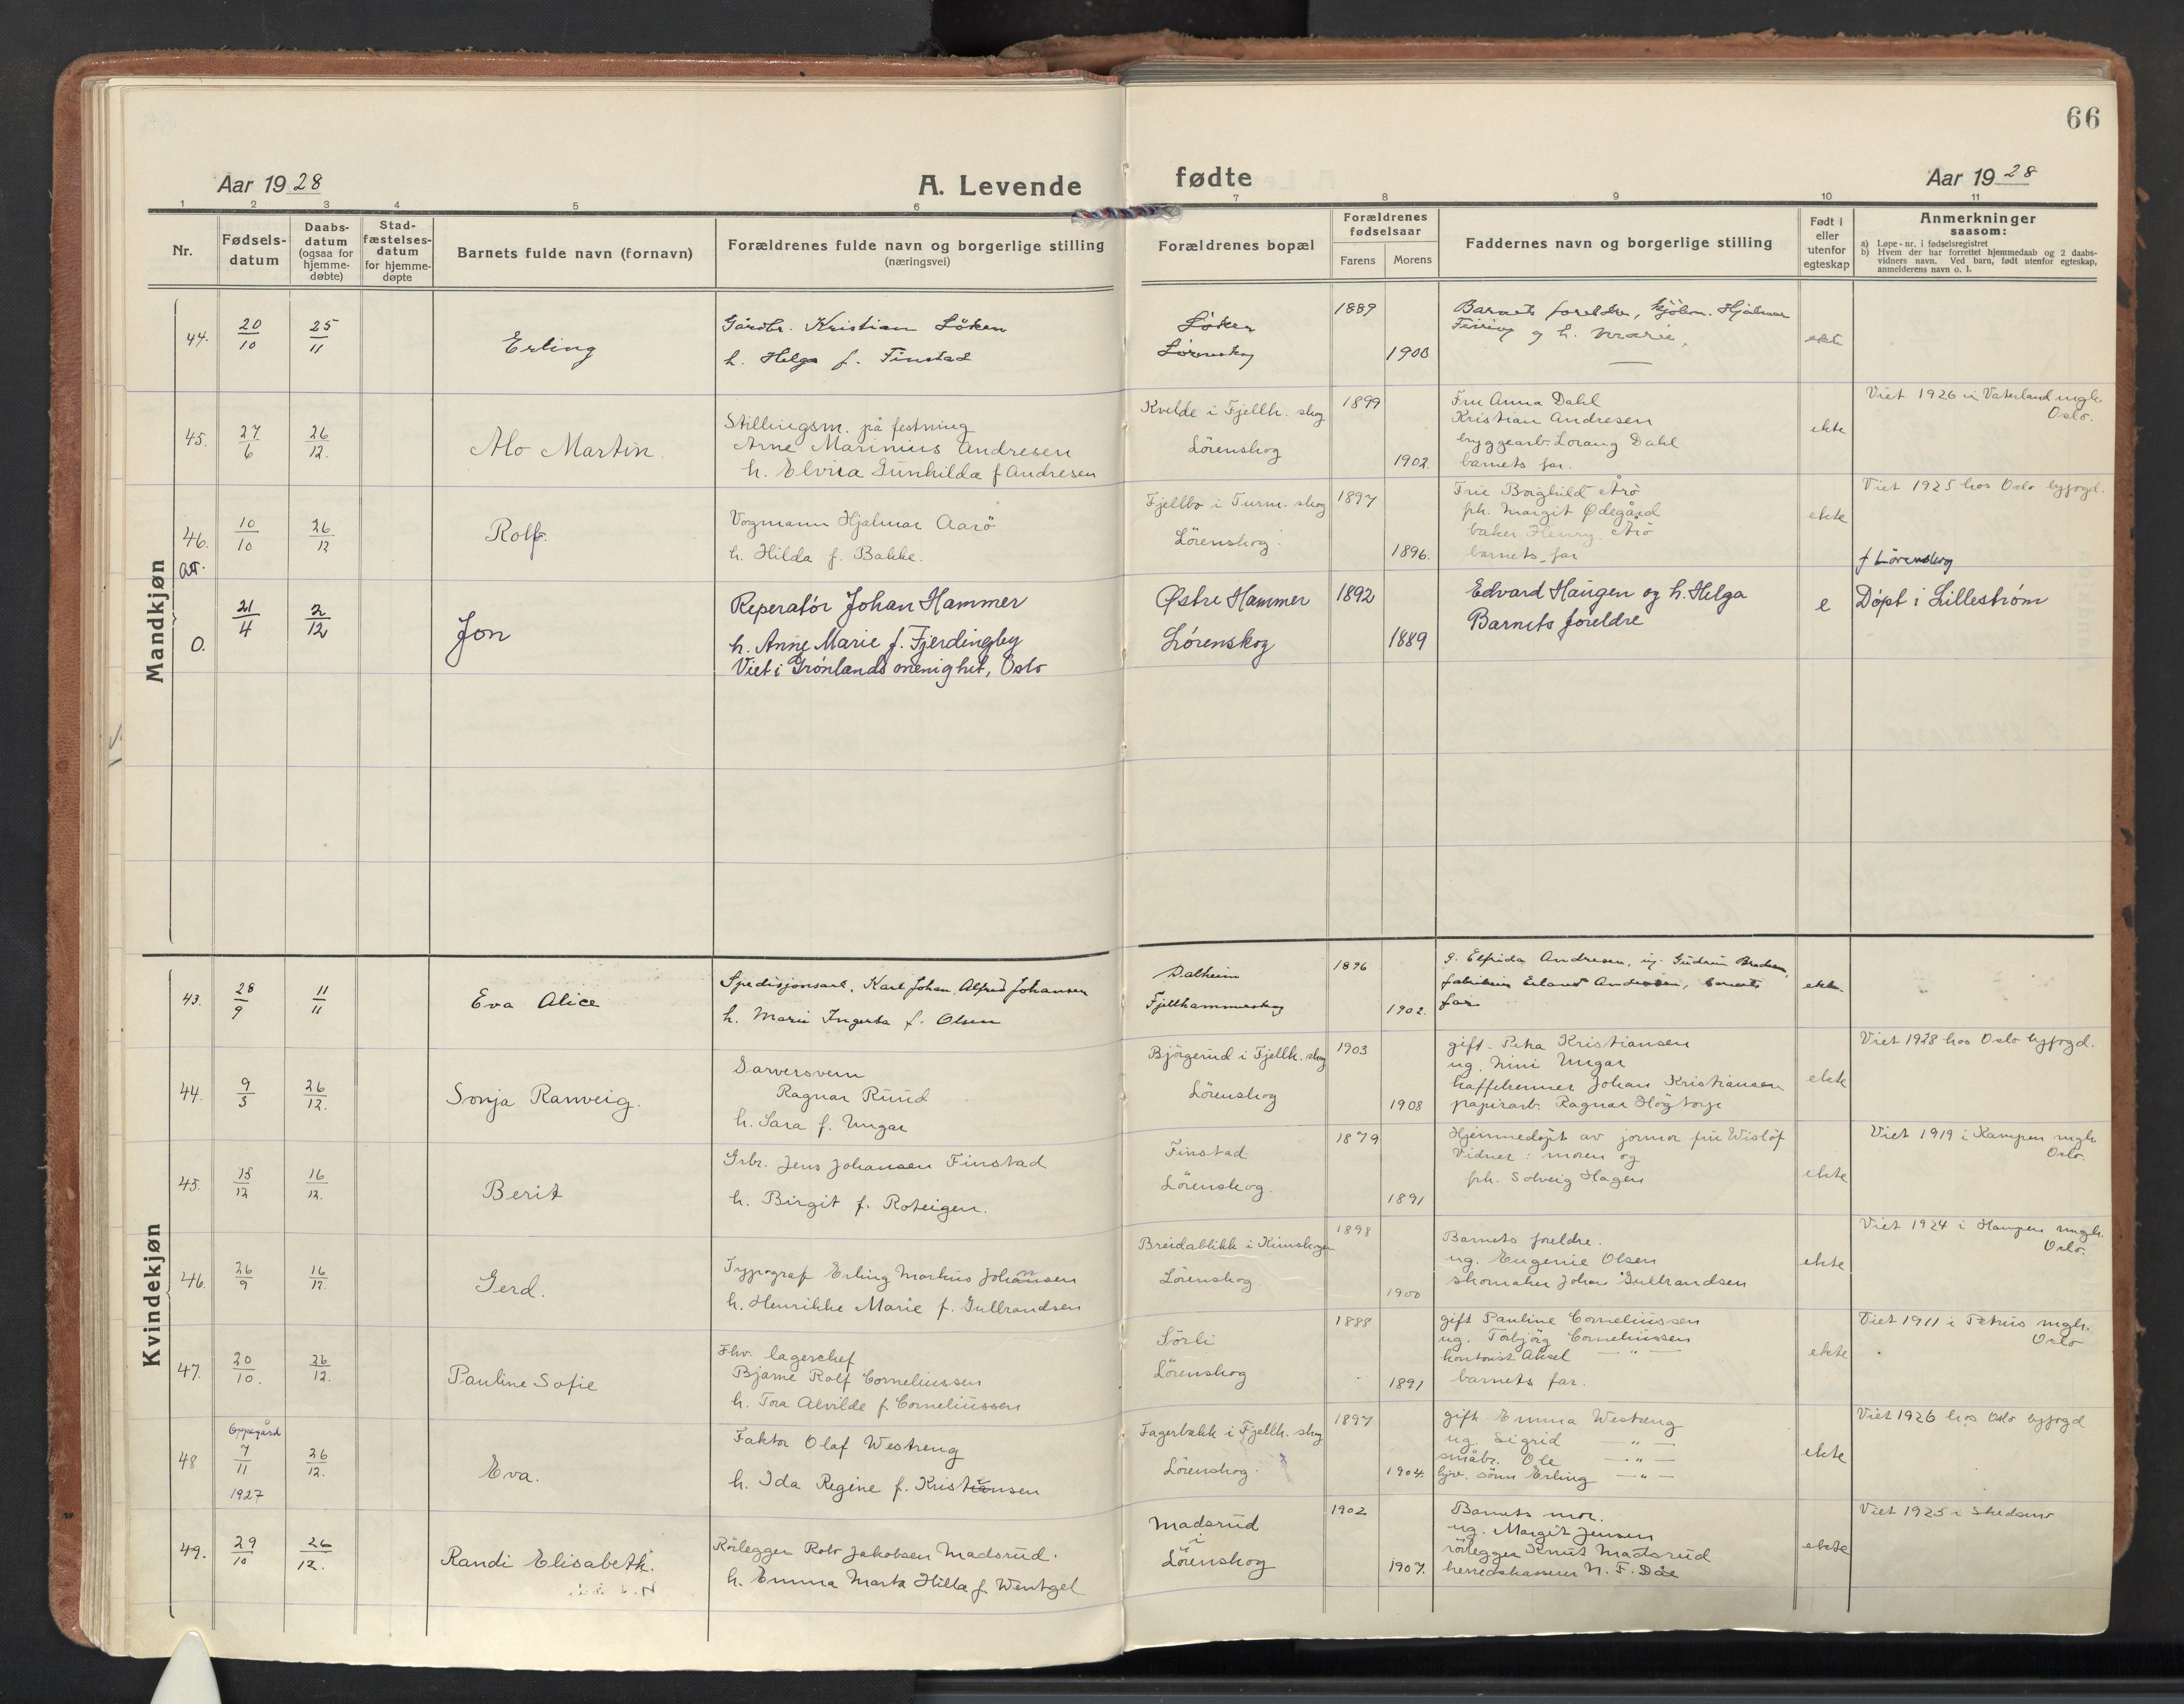 66
Aar 1928
A. Levende
fødte
Aar 1928
1 2 3 4 5 6 7 8 9 10 11
Nr.
Fødsels-
datum
Daabs-
datum
(ogsaa for
hjemme-
døbte)
Stad-
fæstelses-
datum
for hjemme-
døpte
Barnets fulde navn (fornavn)
Forældrenes fulde navn og borgerlige stilling
(næringsvei)
Forældrenes bopæl
Forældrenes
fødselsaar
Farens
Morens
Faddernes navn og borgerlige stilling
Født i
eller
utenfor
egteskap
Anmerkninger
saasom:
a) Løpe-nr. i fødselsregistret
b) Hvem der har forrettet hjemmedaab og 2 daabs-
vidners navn. Ved barn, født utenfor egteskap,
anmelderens navn o. l.
Mandkjøn
44.
20/10
25/11
Erling
Gårdbr. Kristian Löken
h. Helga f. Finstad
Löken
Lörenskog
1889
1900
Barnets foreldre, kjöbm. Hjalmar
Feiring og h. Marie,
ekte
45.
27/6
26/12.
Alo Martin.
Stillingsm. på festning
Arne Marinius Andresen
h. Elvira Gunhilda f Andresen
Kvelde i Fjellh. skog
Lörenskog
1899
1902.
Fru Anna Dahl
Kristian Andresen
bryggearb. Lorang Dahl
barnets far.
ekte
Viet 1926 i Vaterland mgh.
Oslo.
46.
10/10
26/12
Rolf.
Vogmann Hjalmar Aarö
h. Hilda f. Bakke.
Fjellbo i Turm. skog
Lörenskog
1897
1896.
Frue Borghild Årö
frk. Margit Ødegård
baker Henry Årö
barnets far
ekte
Viet 1925 hos Oslo byfogd.
f Lörenskog
0.
21/4
2/12
Jon
Reperatör Johan Hammer
h. Anne Marie f. Fjerdingby
Viet i Grönlands menighet, Oslo
Østre Hammer
Lörenskog
1892
1889
Edvard Haugen og h. Helga
Barnets foreldre
e
Döpt i Lilleström
Kvindekjøn
43.
28/9
11/11
Eva Alice
Spedisjonsarb. Karl Johan Alfred Johansen
h. Marie Ingerba f. Olsen
Dalheim
Fjellhammerskog
1896
1902.
g. Elfrida Andresen, ug. Gudrun
Erland Andresen, barnets
far
ekte.
44.
9/3
26/12.
Sonja Ranveig.
Sarversvenn
Ragnar Ruud
h. Sara f. Ungar
Björgerud i Fjellh. skog
Lörenskog
1903
1908
gift. Petra Kristiansen
ug. Nini Ungar
kaffebrenner Johan Kristiansen
papirarb. Ragnar Högtorp
ekte
Viet 1928 hos Oslo byfogd.
45.
15/12
16/12.
Berit
Grbr. Jens Johansen Finstad
h. Birgit f. Roteigen.
Finstad
Lörenskog.
1879
1891
Hjemmedöpt av jormor fru Wislöf
Vidner: moren og
frk. Solveig Hagen
ekte
Viet 1919 i Kampen mgh
Oslo.
46.
26/9
16/12.
Gerd.
Typograf Erling Markus Johansen
h. Henrikke Marie f. Gulbrandsen
Breidablikk i Kurnskogen
Lörenskog
1898
1900
Barnets foreldre.
ug. Eugenie Olsen
skomaker Johan Gulbrandsen
ekte
Viet 1924 i Kampen mgh.
Oslo.
47.
20/10.
26/12.
Pauline Sofie
Fhv. lagerchef
Bjarne Rolf Corneliussen
h. Tora Alvilde f. Corneliussen
Sörli
Lörenskog
1888
1891
gift Pauline Corneliussen
ug. Torbjörg Corneliussen
kontorist Aksel — " —
barnets far.
ekte
Viet 1911 i Petrus mgh.
Oslo
48
Oppegård
7/11
1927
26/12.
Eva.
Faktor Olaf Westreng
h. Ida Regine f. Kristiansen
Fagerbakk i Fjellh. skog
Lörenskog
1897
1904.
gift Emma Westreng
ug. Sigrid " —
småbr. Ole — " —
hjv. sönn Erling — " —
ekte
Viet 1926 hos Oslo byfogd
49.
29/10
26/12.
Randi Elisabeth.
Rörlegger Rolv Jakobsen Madsrud.
h. Emma Marta Hilla f. Wentzel
Madsrud
i
Lörenskog
1902
1907.
Barnets mor.
ug. Margit Jensen
rörlegger Knut Madsrud
herredskasserer N. F. Dåe
ekte
Viet 1925 i Skedsmo